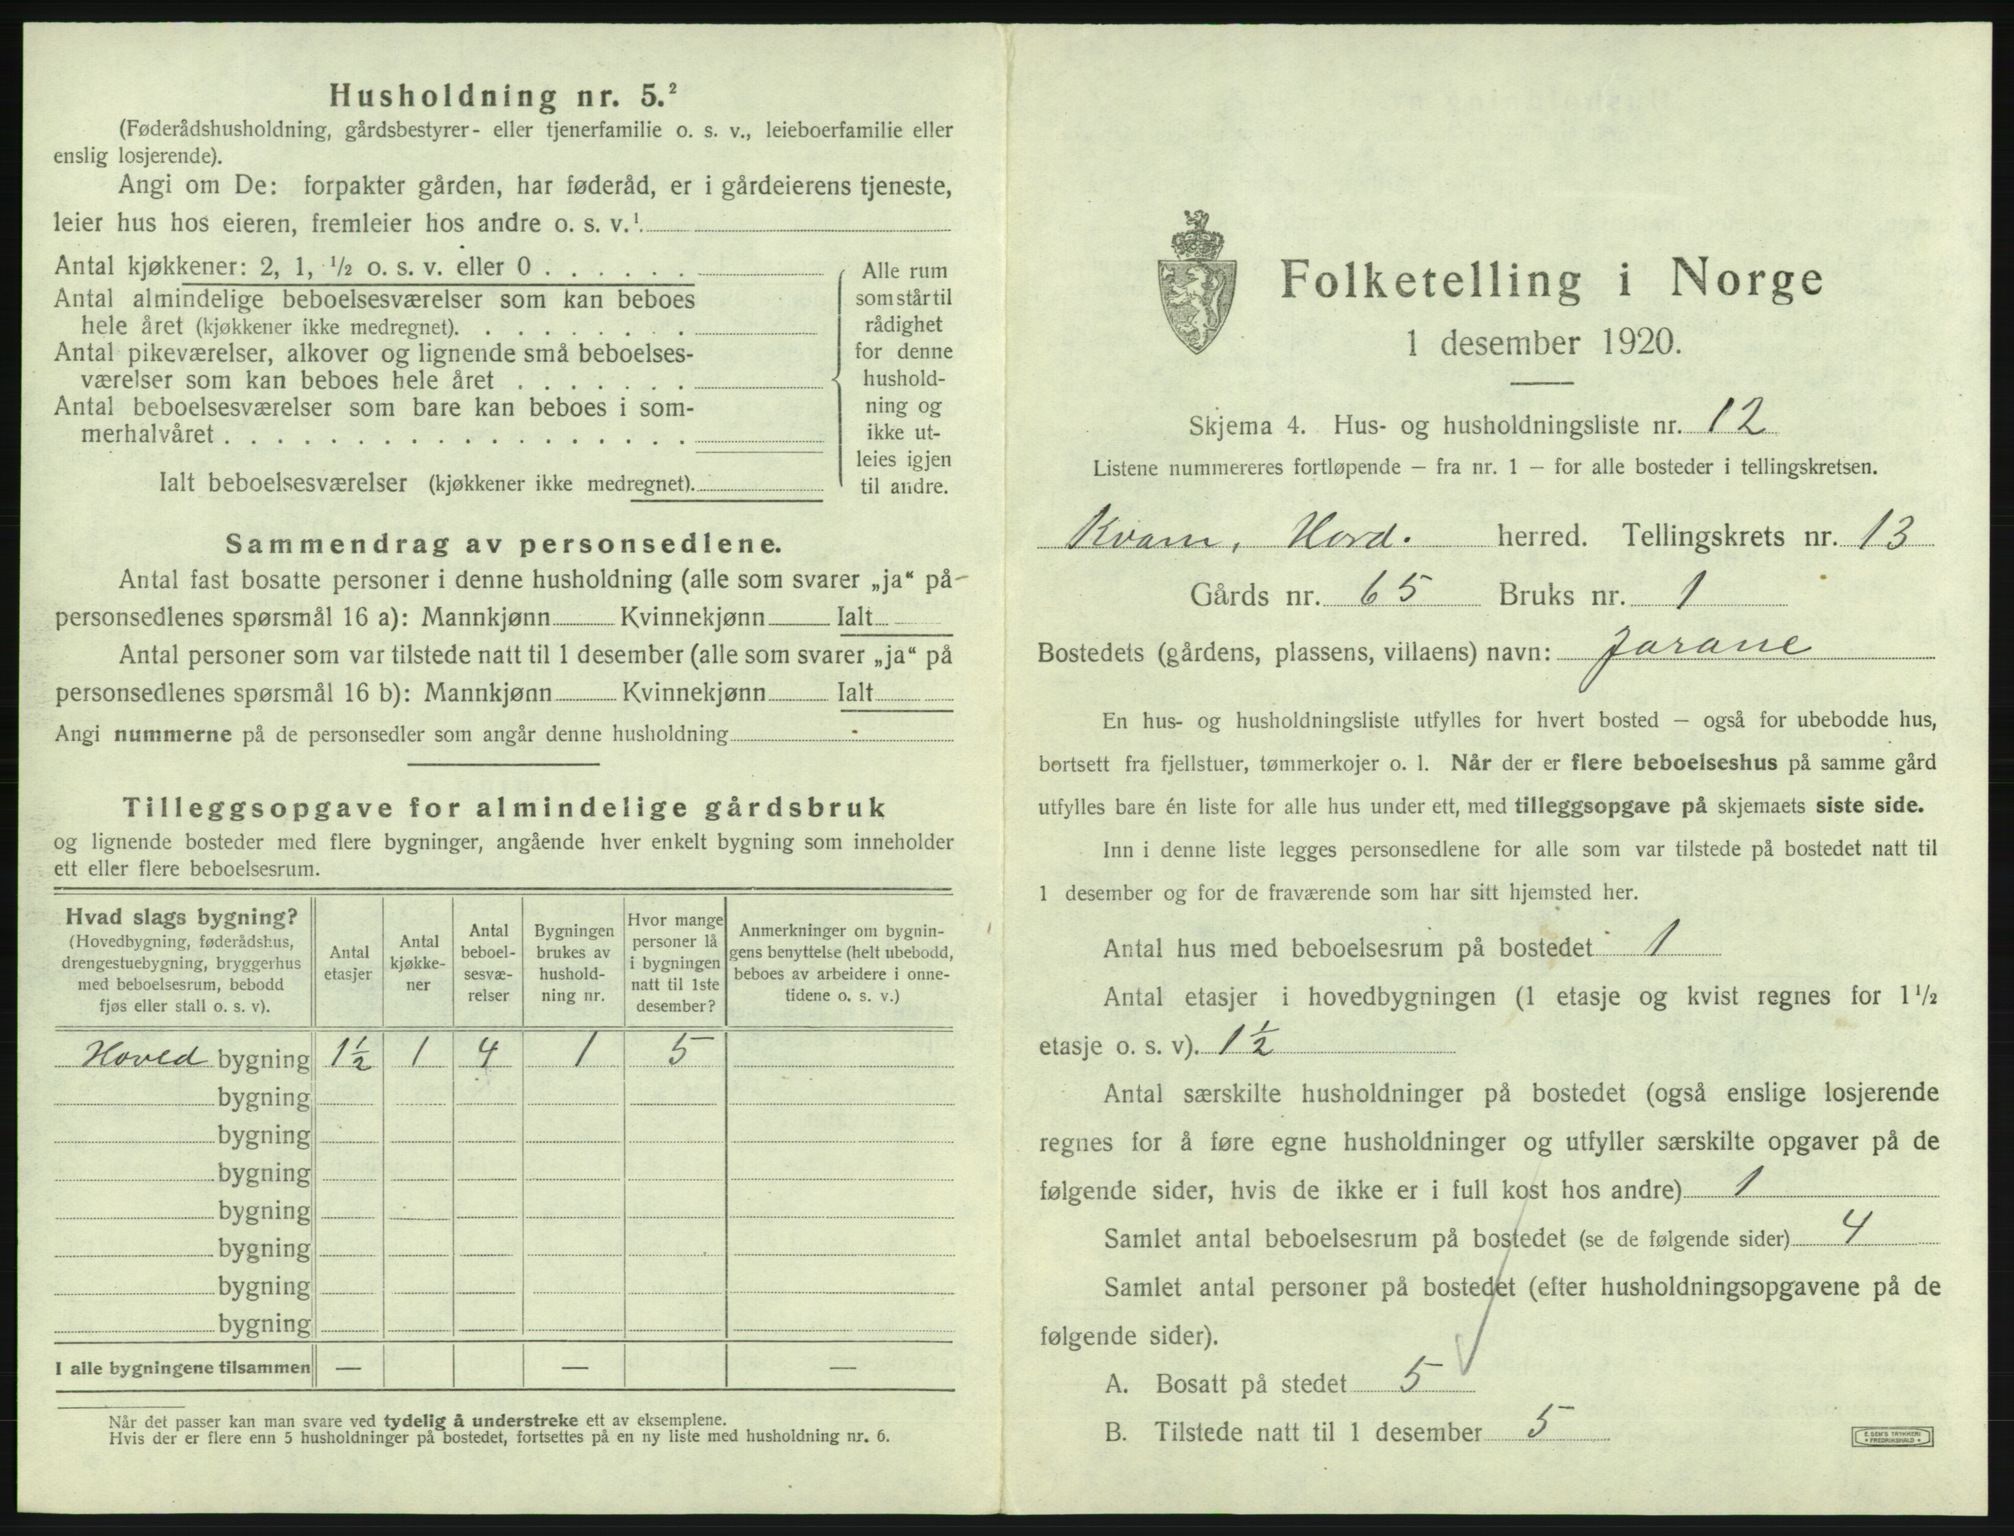 Husholdning nr. 5.²
(Føderådshusholdning, gårdsbestyrer- eller tjenerfamilie o. s. v., leieboerfamilie eller
enslig losjerende).
Angi om De: forpakter gården, har føderåd, er i gårdeierens tjeneste,
leier hus hos eieren, fremleier hos andre o. s. v.¹
Antal kjøkkener: 2, 1, ½ o. s. v. eller 0 . . . . . .
Antal almindelige beboelsesværelser som kan beboes
hele året (kjøkkener ikke medregnet). . . . . . . . .
Antal pikeværelser, alkover og lignende små beboelses-
værelser som kan beboes hele året . . . . . . .
Antal beboelsesværelser som bare kan beboes i som-
merhalvåret . . . . . . . . . . . . . . . . . .
Ialt beboelsesværelser (kjøkkener ikke medregnet).
Alle rum
som står til
rådighet
for denne
hushold-
ning og
ikke ut-
leies igjen
til andre.
Sammendrag av personsedlene.
Antal fast bosatte personer i denne husholdning (alle som svarer „ja“ på
personsedlenes spørsmål 16 a): Mannkjønn Kvinnekjønn Ialt
Antal personer som var tilstede natt til 1 desember (alle som svarer „ja“ på
personsedlenes spørsmål 16 b): Mannkjønn Kvinnekjønn Ialt
Angi nummerne på de personsedler som angår denne husholdning
Tilleggsopgave for almindelige gårdsbruk
og lignende bosteder med flere bygninger, angående hver enkelt bygning som inneholder
ett eller flere beboelsesrum.
Hvad slags bygning?
(Hovedbygning, føderådshus,
drengestuebygning, bryggerhus
med beboelsesrum, bebodd
fjøs eller stall o. s. v).
Antal
etasjer
Antal
kjøkke-
ner
Antal
beboel-
sesvæ-
relser
Bygningen
brukes av
hushold-
ning nr.
Hvor mange
personer lå
i bygningen
natt til 1ste
desember?
Anmerkninger om bygnin-
gens benyttelse (helt ubebodd,
beboes av arbeidere i onne-
tidene o. s. v.)
Hoved bygning 1½ 1 4 1 5
bygning
bygning
bygning
bygning
bygning
bygning
bygning
I alle bygningene tilsammen — — —
Når det passer kan man svare ved tydelig å understreke ett av eksemplene.
Hvis der er flere enn 5 husholdninger på bostedet, fortsettes på en ny liste med husholdning nr. 6.
Folketelling i Norge
1 desember 1920.
Skjema 4. Hus- og husholdningsliste nr. 12
Listene nummereres fortløpende – fra nr. 1 – for alle bosteder i tellingskretsen.
Kvam, Hord. herred. Tellingskrets nr. 13
Gårds nr. 65 Bruks nr. 1
Bostedets (gårdens, plassens, villaens) navn: Jarane
En hus- og husholdningsliste utfylles for hvert bosted – også for ubebodde hus,
bortsett fra fjellstuer, tømmerkojer o. l. Når der er flere beboelseshus på samme gård
utfylles bare én liste for alle hus under ett, med tilleggsopgave på skjemaets siste side.
Inn i denne liste legges personsedlene for alle som var tilstede på bostedet natt til
1 desember og for de fraværende som har sitt hjemsted her.
Antal hus med beboelsesrum på bostedet 1
Antal etasjer i hovedbygningen (1 etasje og kvist regnes for 1½
etasje o. s. v). 1½
Antal særskilte husholdninger på bostedet (også enslige losjerende
regnes for å føre egne husholdninger og utfyller særskilte opgaver på de
følgende sider, hvis de ikke er i full kost hos andre) 1
Samlet antal beboelsesrum på bostedet (se de følgende sider) 4
Samlet antal personer på bostedet (efter husholdningsopgavene på de
følgende sider).
A. Bosatt på stedet 5
B. Tilstede natt til 1 desember 5
E. SEM'S TRYKKERI
• FREDRIKSHALD •